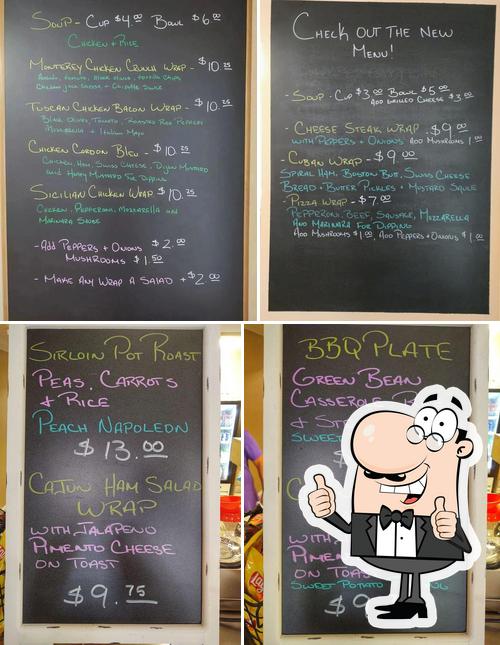 Soup - Cup $4.00 Bowl $6.00
Chicken + Rice
Monterey Chicken Crunch Wrap - $10.25
Tuscan Chicken Bacon Wrap - $10.25
Black Olives, Tomato, Roasted Red Peppers
Mozzarella + Italian Mayo
Chicken Cordon Bleu - $10.25
Chicken, Ham, Swiss Cheese, Dijon Mustard
and Honey Mustard For Dipping
Sicilian Chicken Wrap $10.25
Chicken, Pepperoni, Mozzarella and
Marinara Sauce
- Add Peppers + Onions $2.00
Mushrooms $1.50
- Make Any Wrap a Salad + $2.00
Check out the New
Menu!
- Soup - Cup $3.00 Bowl $5.00
Add Grilled Cheese $3.00
- Cheese Steak Wrap - $9.00
with Peppers + Onions Add Mushrooms 1.00
- Cuban Wrap - $9.00
Spiral Ham, Boston Butt, Swiss Cheese
Bread + Butter Pickles + Mustard Sauce
- Pizza Wrap - $7.00
Pepperoni, Beef, Sausage, Mozzarella
and Marinara For Dipping
Add Mushrooms $1.00, Add Peppers + Onions $1.00
Sirloin Pot Roast
Peas, Carrots
+ Rice
Peach Napoleon
$13.00
Cajun Ham Salad
Wrap
with Jalapeno
Pimento Cheese
on Toast
$9.75
BBQ Plate
Green Bean
Casserole
Sweet
$
with
on Toast
Sweet Potato
$9
Lay's